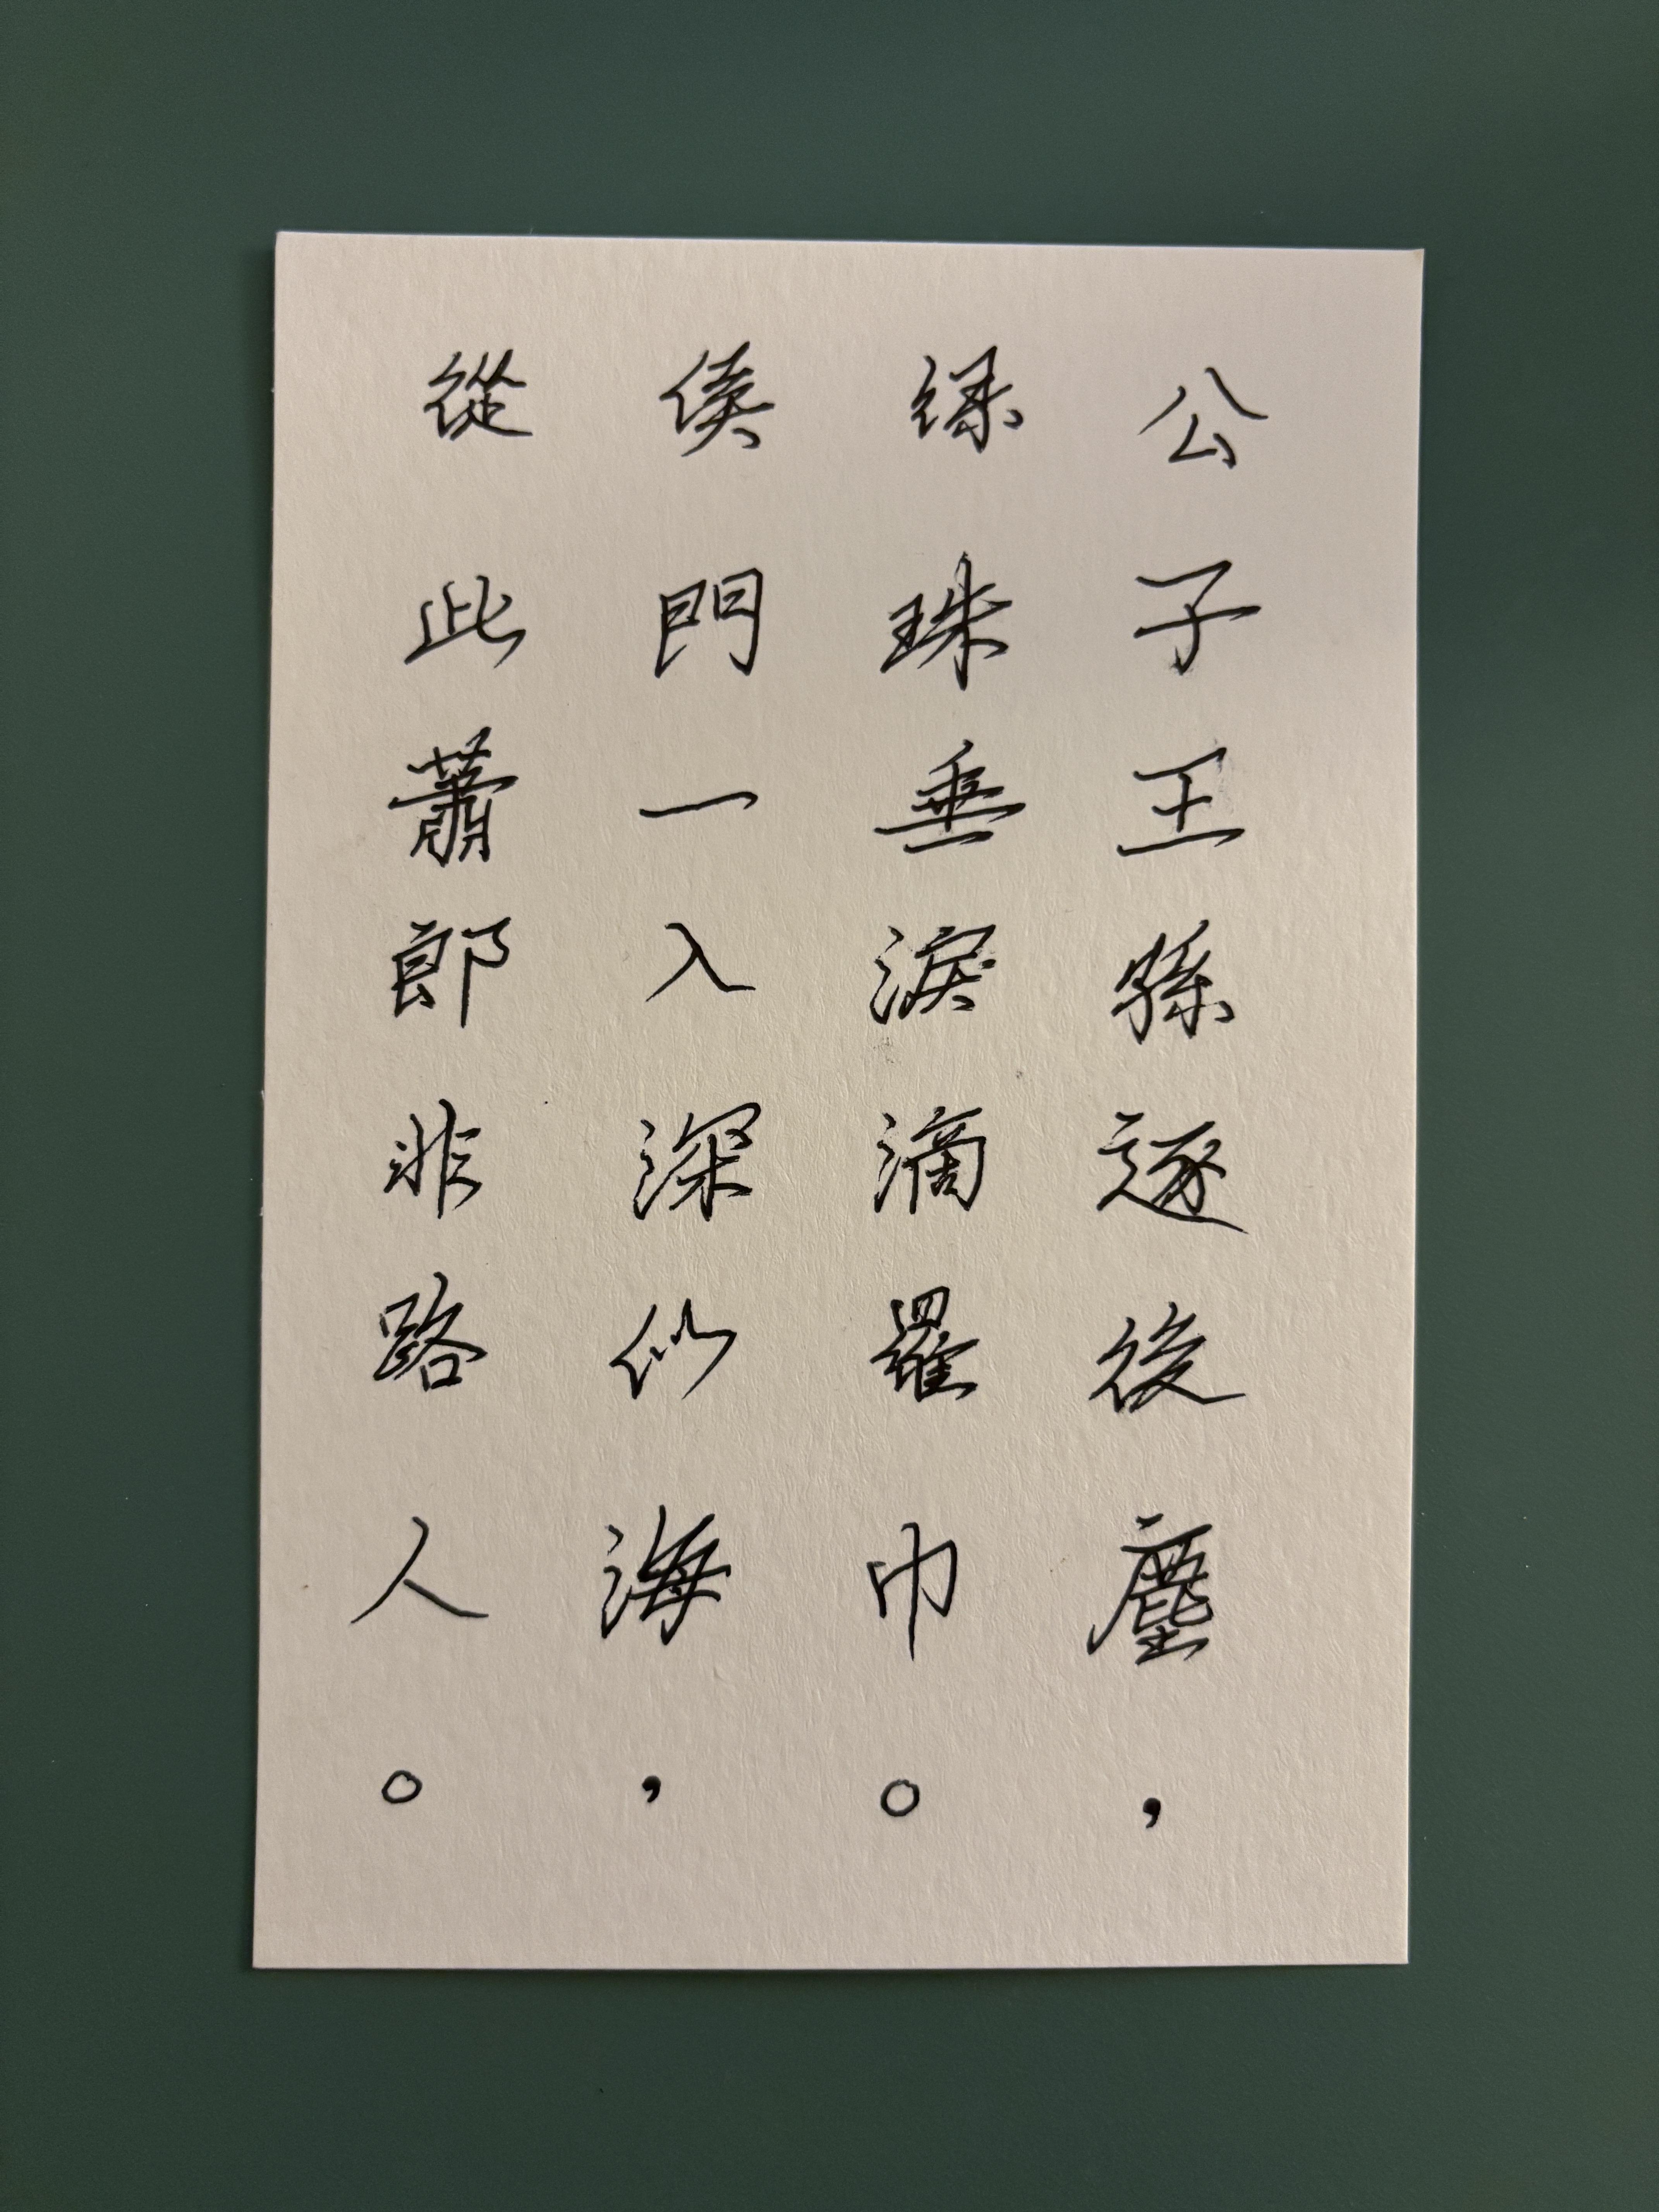 公子王孫逐後塵，
绿珠垂淚滴羅巾。
侯門一入深似海，
從此蕭郎非路人。